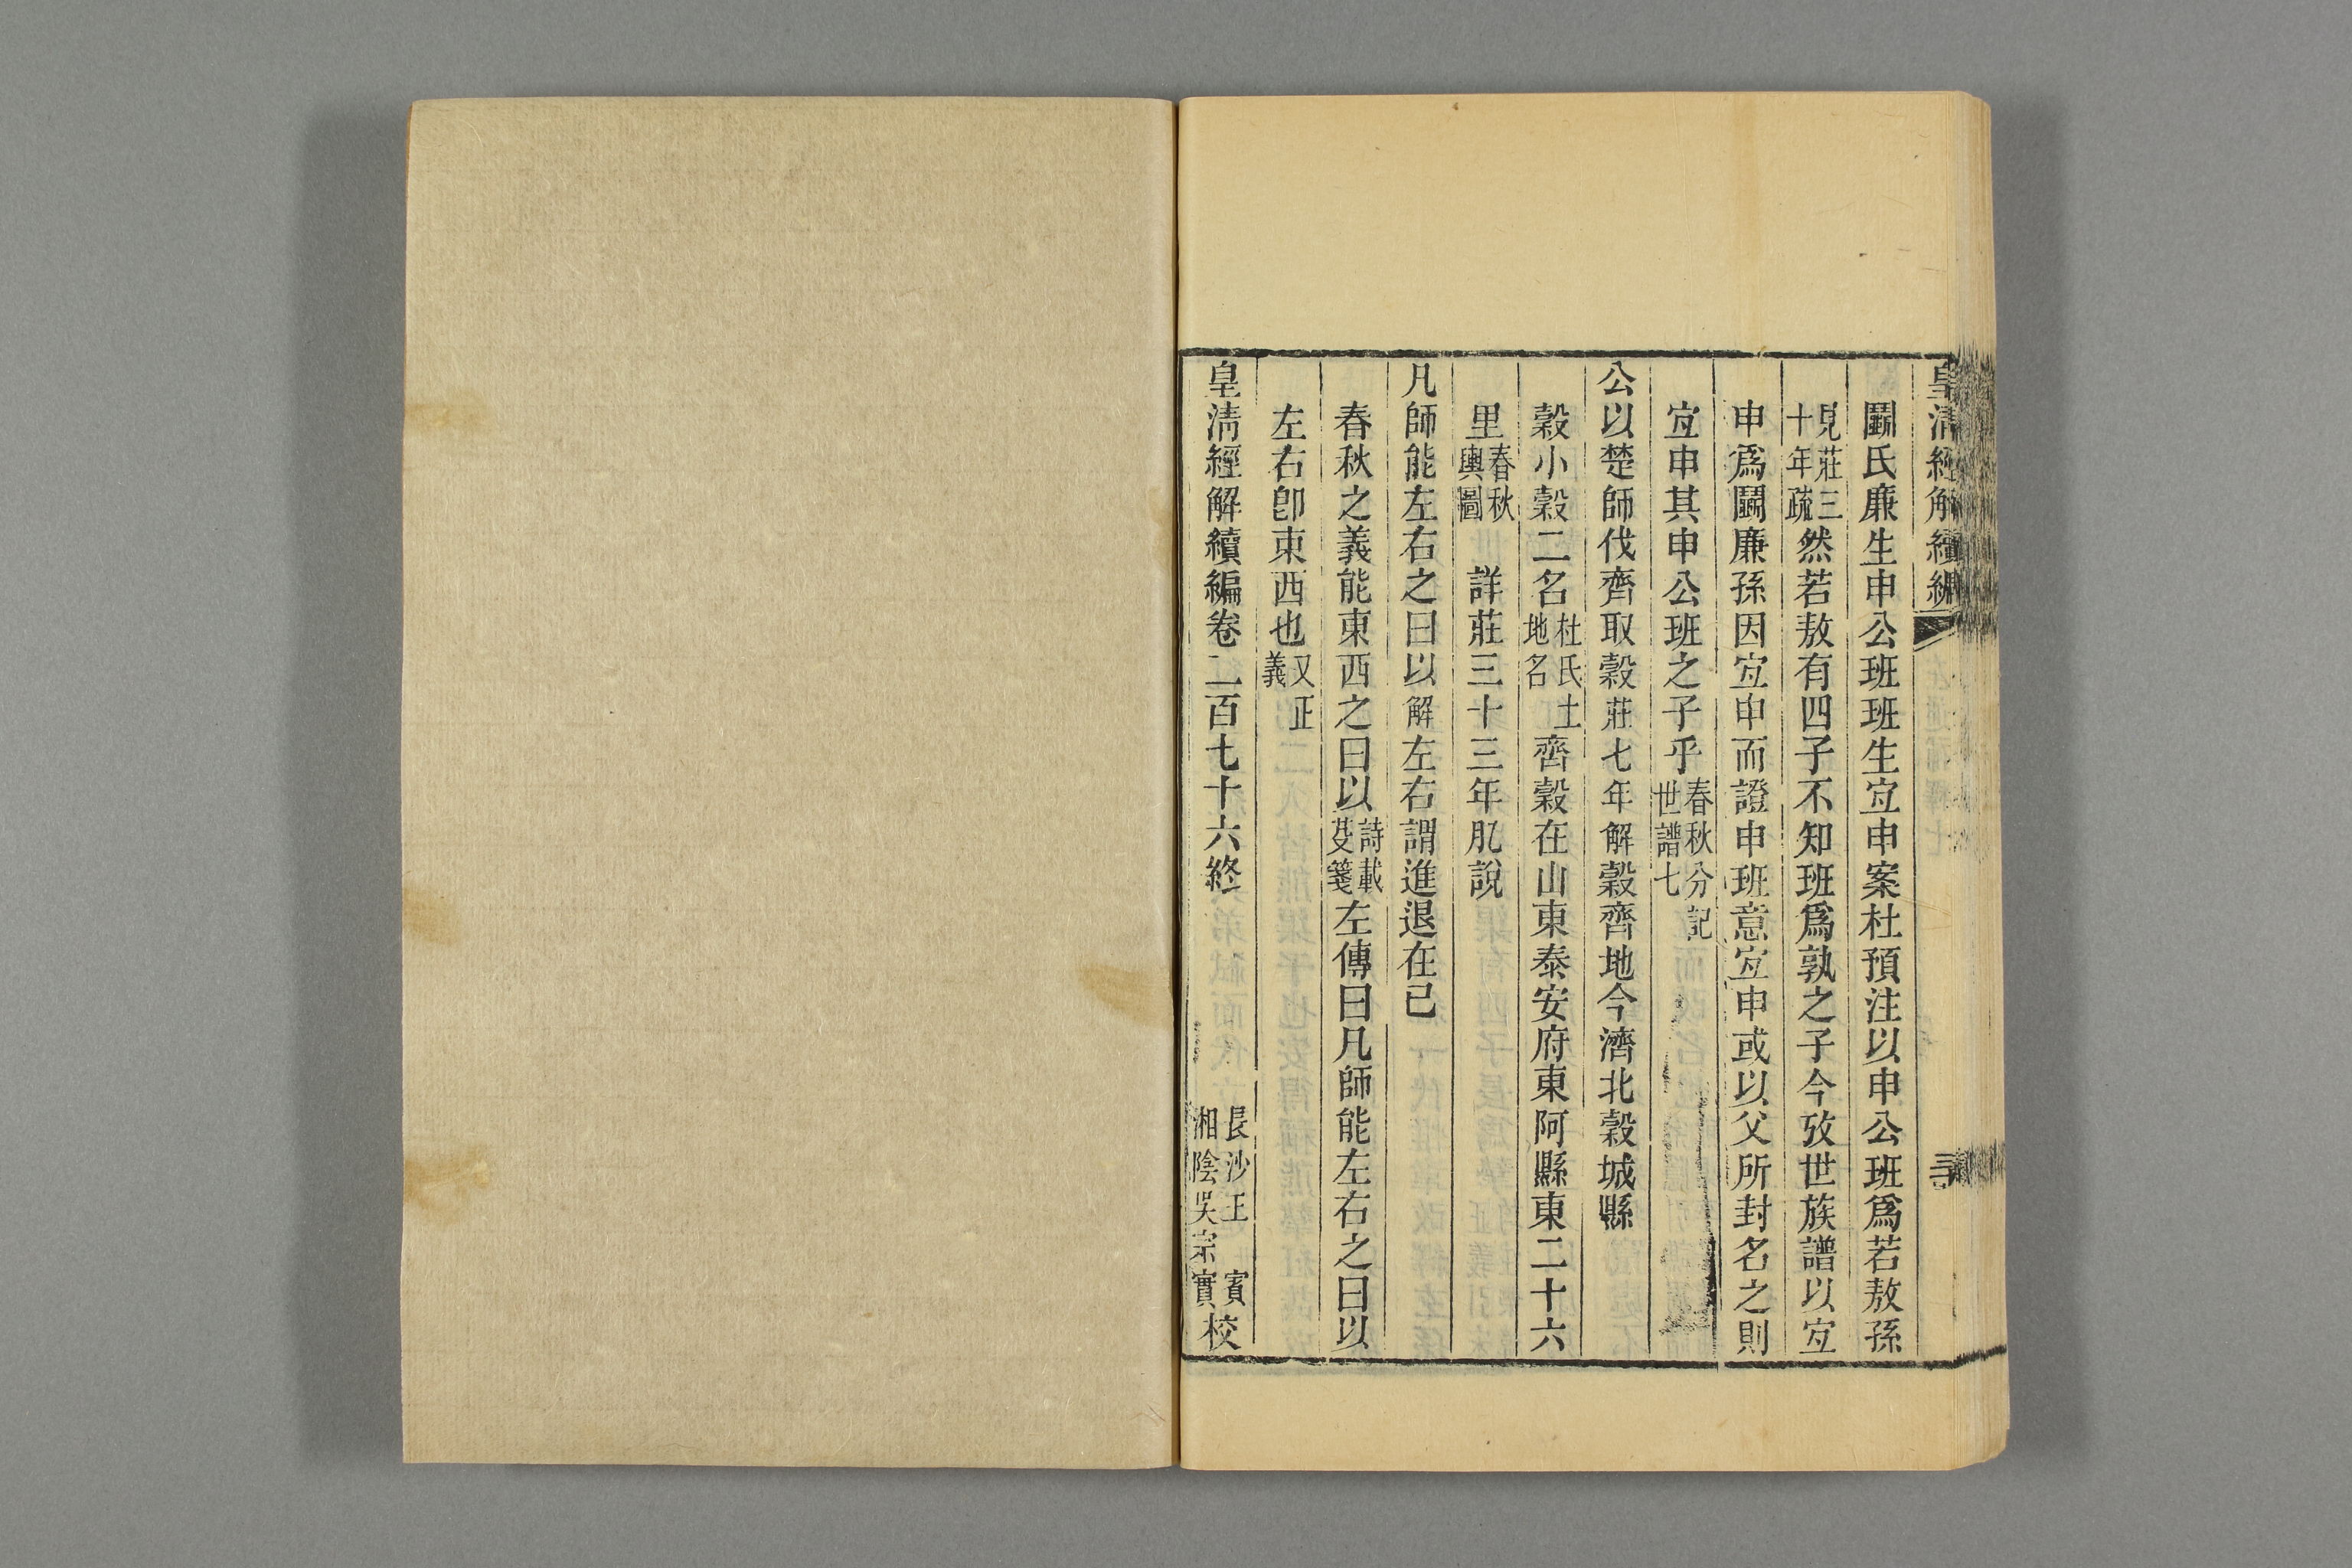 皇清經解續編
鬬氏廉生申公班班生宐申案杜預注以申公班爲若敖孫
見莊三十年疏然若敖有四子不知班爲孰之子今攷世族譜以宐
申爲鬬廉孫因宐申而證申班意宐申或以父所封名之則
宐申其申公班之子乎春秋分記世譜七
公以楚師伐齊取穀莊七年解穀齊地今濟北穀城縣
穀小穀二名杜氏土地名齊穀在山東泰安府東阿縣東二十六
里春秋輿圖詳莊三十三年凡說
凡師能左右之曰以解左右謂進退在已
春秋之義能東西之曰以詩載芟箋左傳曰凡師能左右之曰以
左右卽東西也又正義
皇清經解續編卷二百七十六終
長沙王賓湘陰吳宗實校